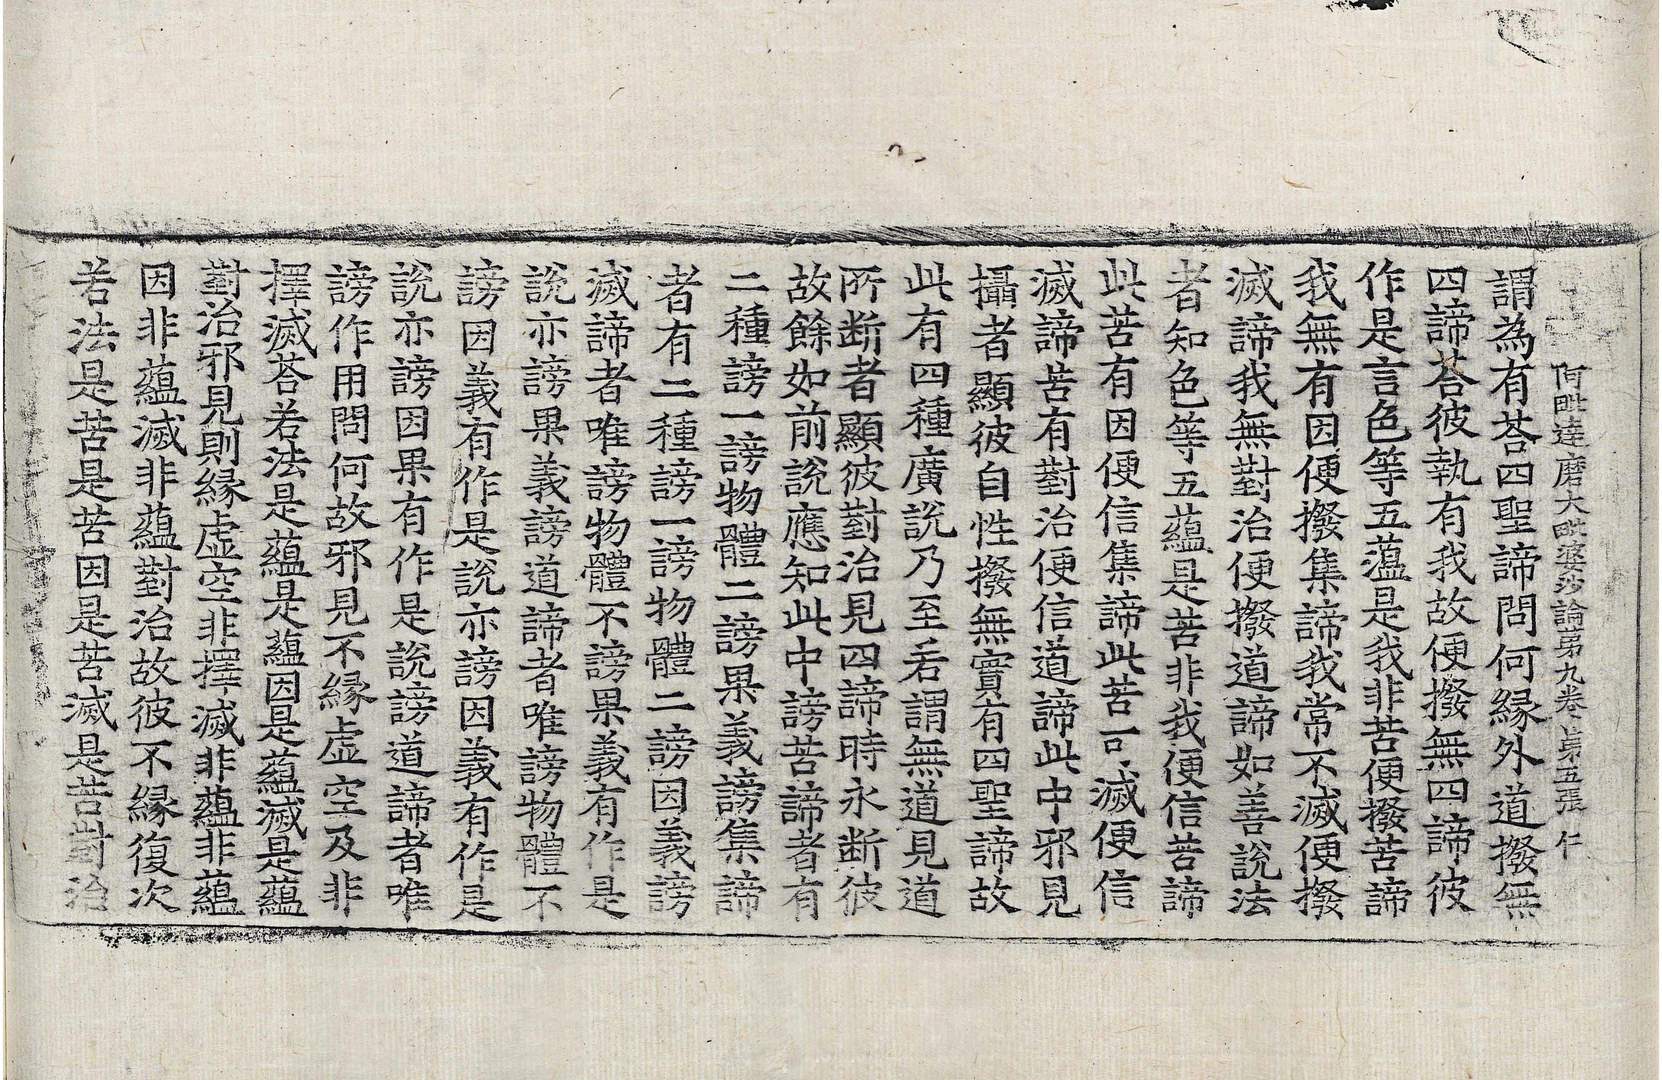 阿毗達磨大毗婆沙論第九卷 第五張 仁
謂為有荅四聖諦問何緣外道撥無
四諦荅彼執有我故便撥無四諦彼
作是言色等五薀是我非苦便撥苦諦
我無有因便撥集諦我常不滅便撥
滅諦我無對治便撥道諦如善說法
者知色等五蘊是苦非我便信苦諦
此苦有因便信集諦此苦可滅便信
滅諦苦有對治便信道諦此中邪見
攝者顯彼自性撥無實有四聖諦故
此有四種廣說乃至若謂無道見道
所斷者顯彼對治見四諦時永斷彼
故餘如前說應知此中謗苦諦者有
二種謗一謗物體二謗果義謗集諦
者有二種謗一謗物體二謗因義謗
滅諦者唯謗物體不謗果義有作是
說亦謗果義謗道諦者唯謗物體不
謗因義有作是說亦謗因義有作是
說亦謗因果有作是說謗道諦者唯
謗作用問何故邪見不緣虛空及非
擇滅荅若法是蘊是蘊因是蘊滅是蘊
對治邪見則緣虛空非擇滅非蘊非蘊
因非蘊滅非蘊對治故彼不緣復次
若法是苦是苦因是苦滅是苦對治